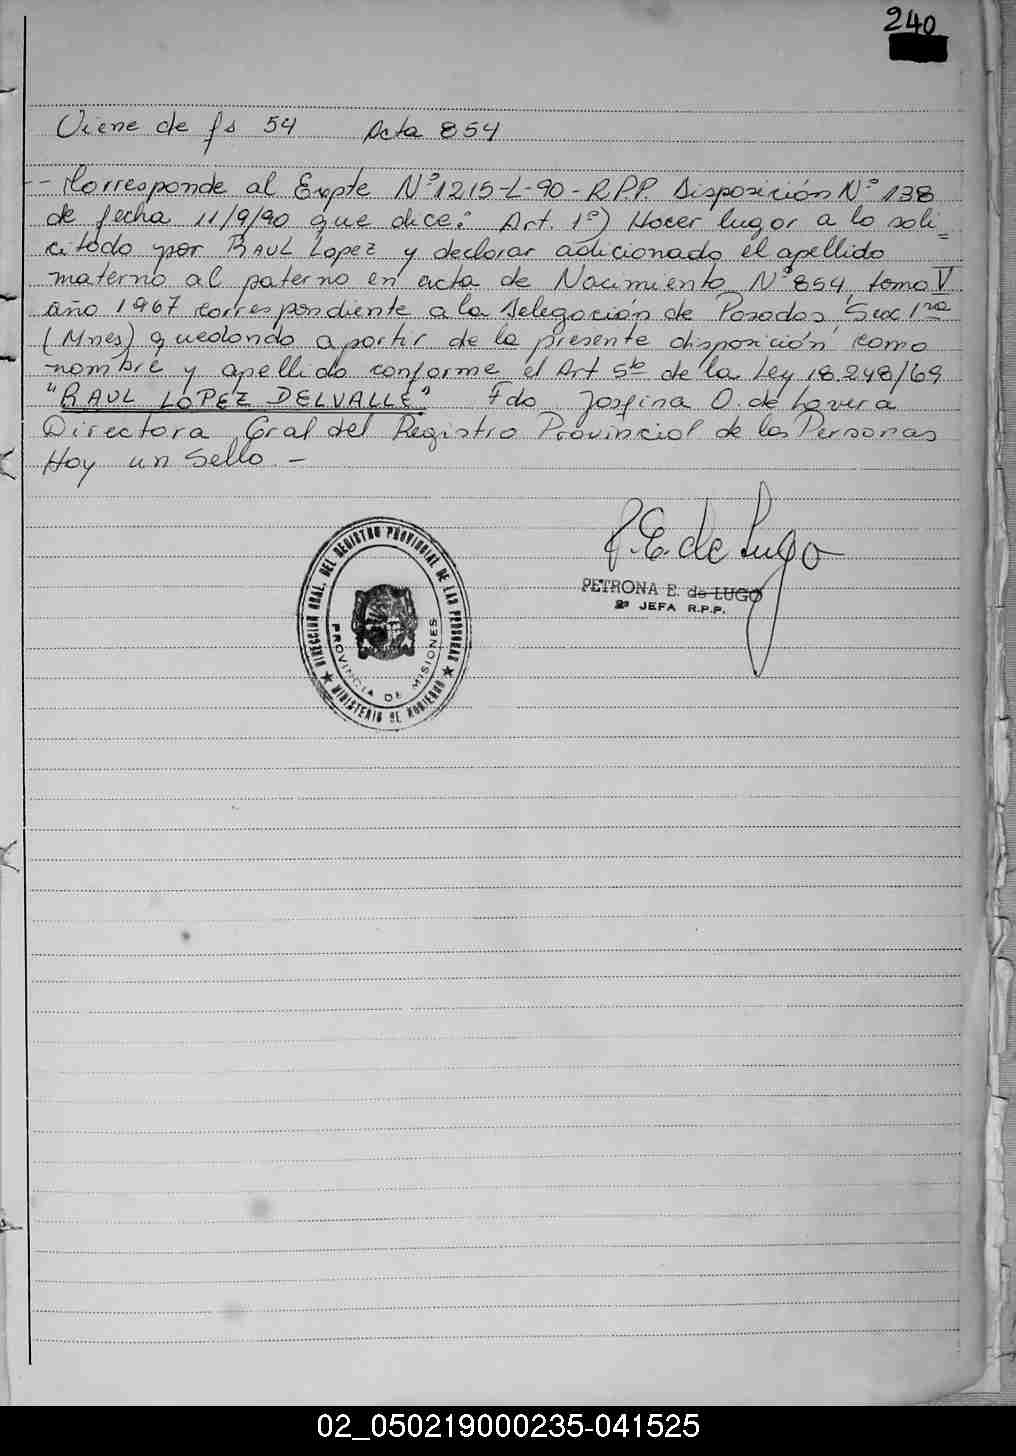 240
Viene de fs 54 Acta 854
- Corresponde al Expte Nº 1215-L-90-R.P.P. Disposición Nº 138
de fecha 11/9/90 que dice: Art. 1º) Hacer lugar a lo soli=
citado por RAUL Lopez y declarar adicionado el apellido
materno al paterno en acta de Nacimiento Nº 854, tomo V
año 1967 correspondiente a la Delegación de Posadas, Secc 1ra
(Mnes) quedando a partir de la presente disposición como
nombre y apellido conforme el Art 5to de la Ley 18.248/69
"RAUL LOPEZ DELVALLE" Fdo Josefina O. de Lovera
Directora Gral del Registro Provincial de las Personas
Hay un Sello. -
P.E. de Lugo
PETRONA E. de LUGO
2ª JEFA R.P.P.
DIRECCION GRAL. DEL REGISTRO PROVINCIAL DE LAS PERSONAS
PROVINCIA DE MISIONES
★ MINISTERIO DE GOBIERNO ★
02_050219000235-041525